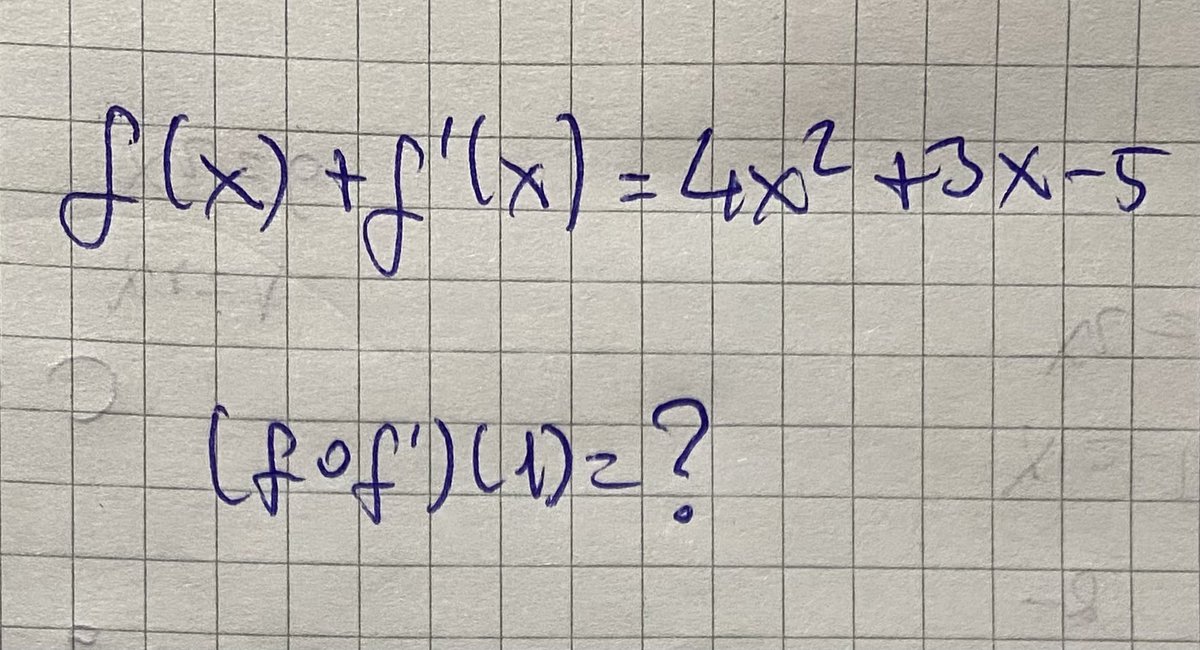 f(x) + f'(x) = 4x² + 3x - 5
(f o f')(1) = ?